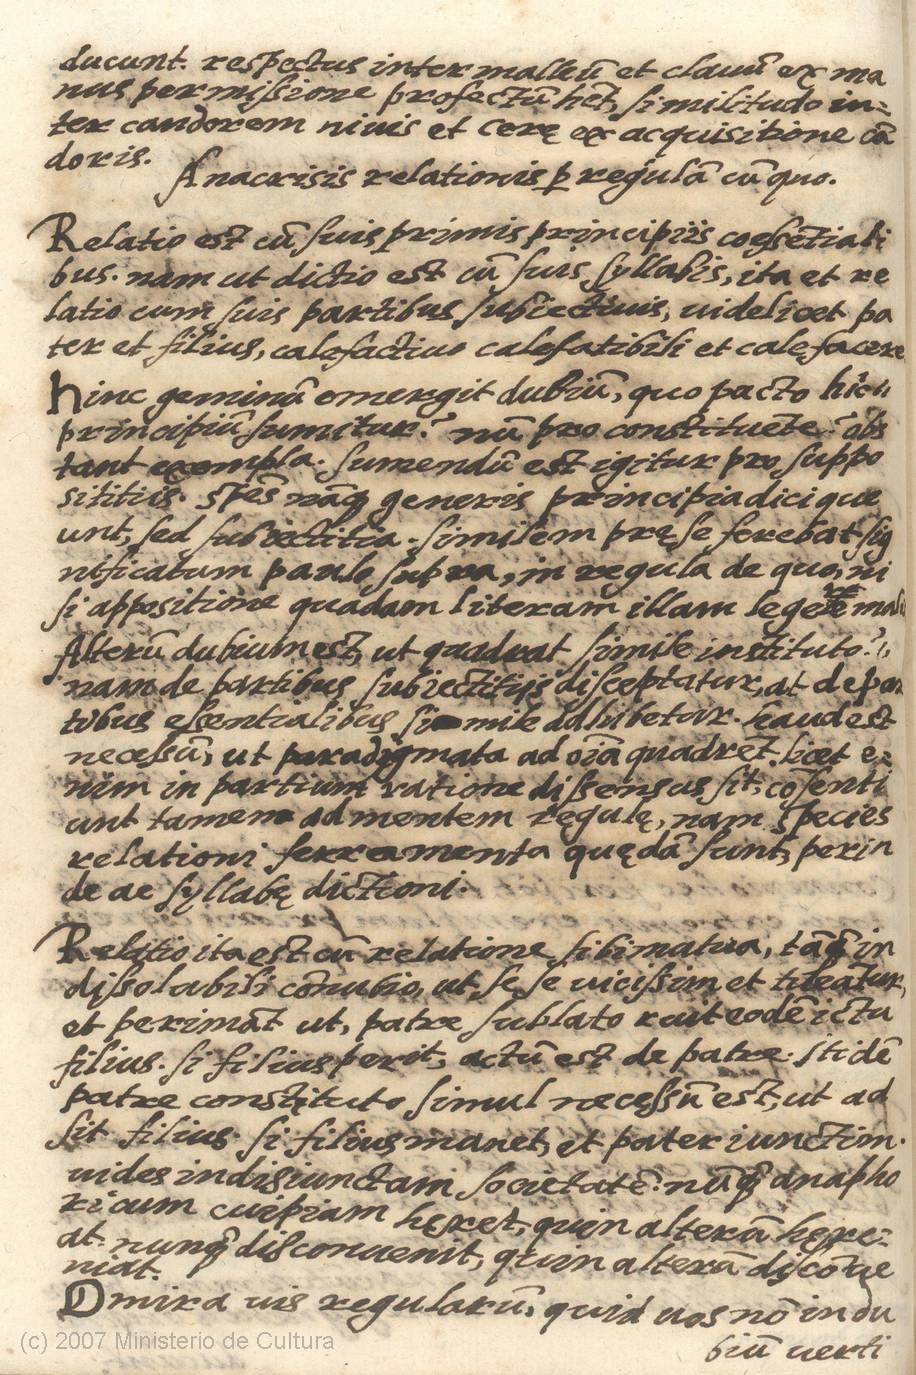 ducunt. respectus inter malleū et clauū ex ma
nus permissione profectū hēt, similitudo in=
ter candorem niuis et cerę ex acquisitione cā
doris.
Anacrisis relationis p regulā cū quo.
Relatio est cū suis primis principiis coessētiali
bus. nam ut dictio est cū suis syllabis, ita et re
latio cum suis partibus subiectiuis, uidelicet pa
ter et filius, calefactiuo calefatibili et calęfacere
hinc geminū emergit dubiū, quo pacto hic
principiū sumitur? nū pro constituēte? obs
tant exempla. sumendū est igitur pro suppo
sititiis. spēs nāq generis principia dici que
unt, sed subiectitia. similem prę se ferebat sig
nificatum paulo supra, in regula de quo, ni
si appositione quadam literam illam
Alterū dubium est, ut quadrat simile instituto?
nam de partibus subiectitiis disceptatur, at de par
tibus essentialibus simile adhibetur. haud est
necessū, ut paradigmata ad oīa quadrēt. licet e=
nim in partium ratione dissensus sit, cōsenti
unt tamen ad mentem regulę, nam species
relationi ferramenta quędā sunt, perin
de ac syllabę dictioni.
Relatio ita est cū relatione sibi matua, tāq in
dissolabili cōnubio, ut se se uicissim et tueātur,
et perimāt ut, patre sublato ruit eodē ictu
filius. si filius perit, actū est de patre. itidē
patre constituto simul necessū est, ut ad
sit filius. si filius manet, et pater iunctim.
uides indisiunctam societatē. nūq anapho
ricum cuipiam hęret, quin alterū hęre=
at. nunq disconuenit, quin alterā discōue
niat.
O mira uis regularū, quid uos nō in du
biū uerti
(c) 2007 Ministerio de Cultura